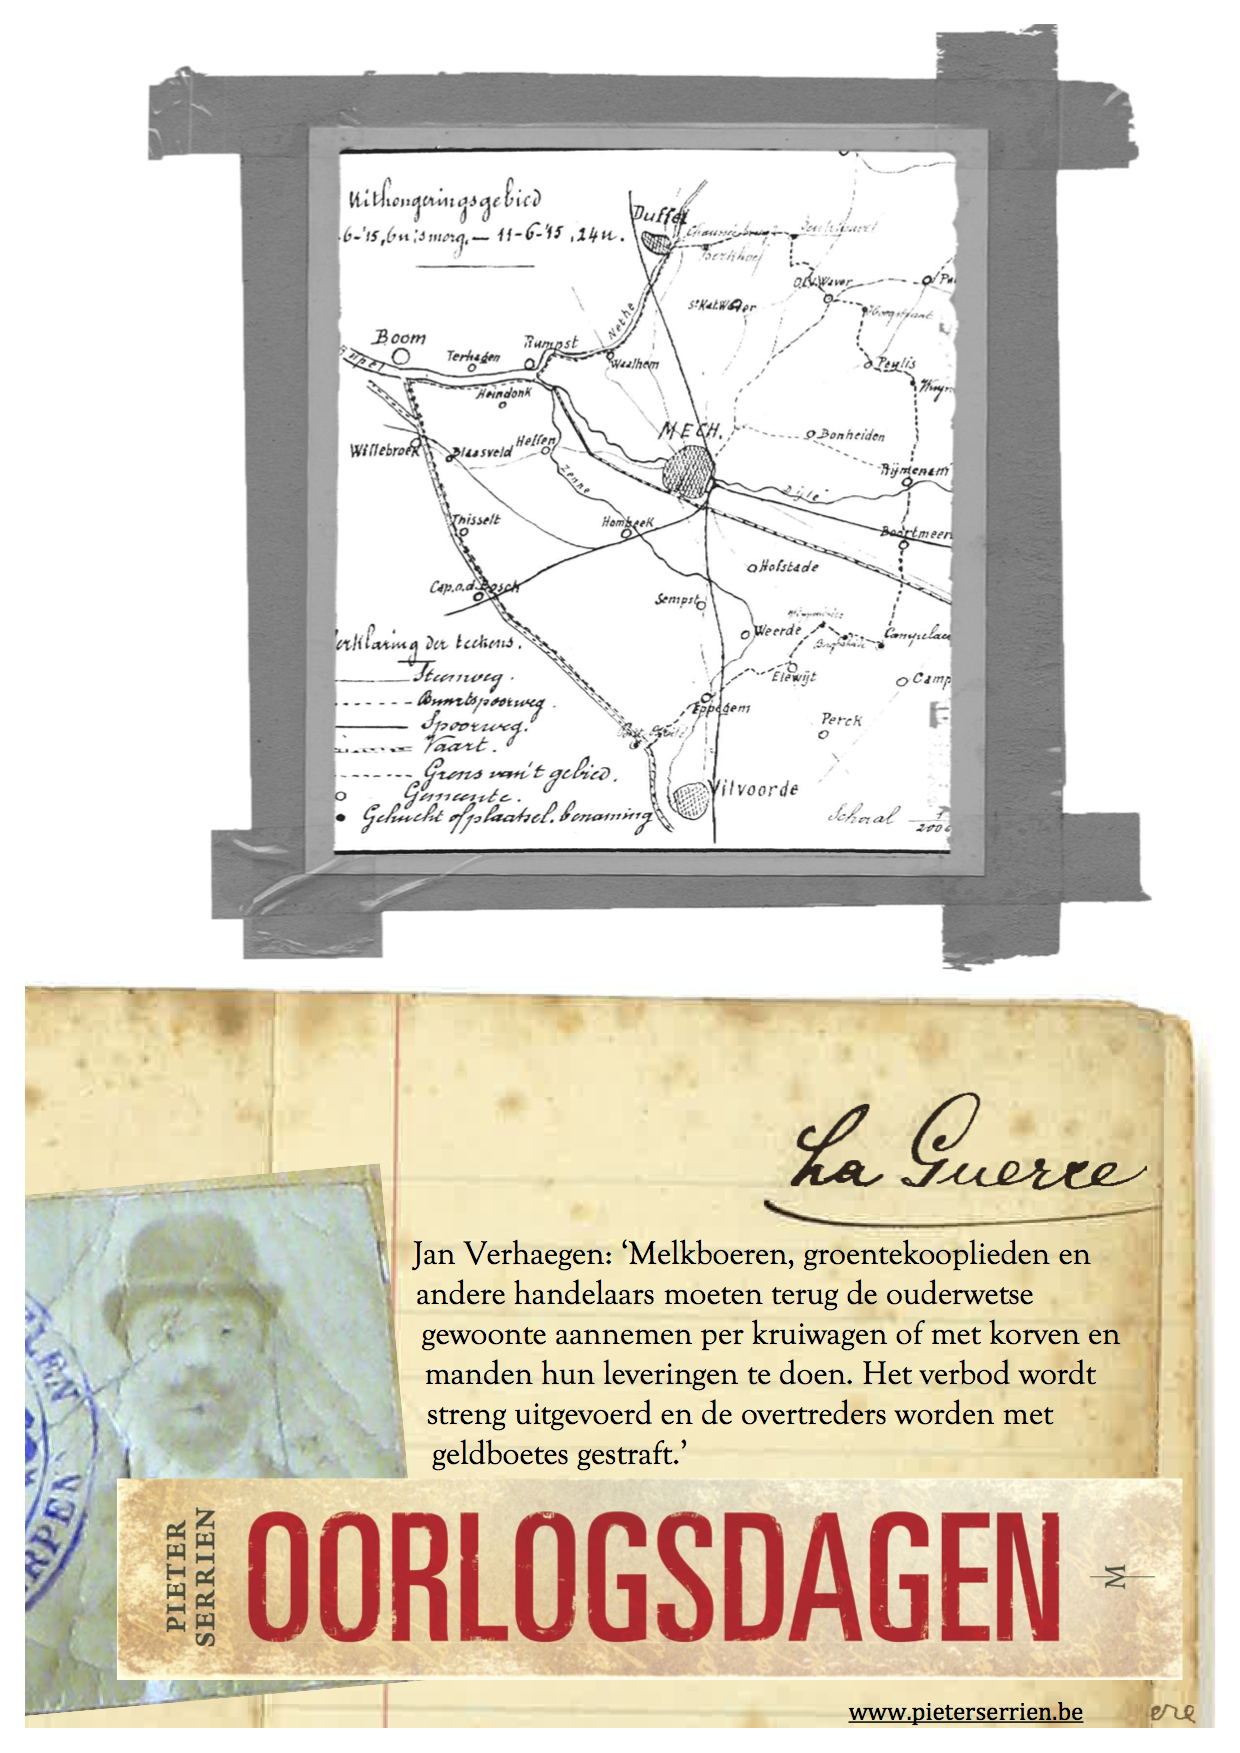 Uithongeringsgebied
6-'15, 6u 'smorg. — 11-6-'15, 24u.
Duffel
Berkhoef
O.L.V. Waver
St Kat. Waver
Nethe
Boom
Rumpst
Terhagen
Waalhem
Peulis
Heindonk
MECH.
Bonheiden
Willebroek
Blaasveld
Heffen
Rijmenam
Zenne
Dijle
Thisselt
Hombeek
Boortmeer
Hofstade
Cap. o. d. Bosch
Sempst
Weerde
Campelaar
erklaring der teekens.
Elewijt
Camp
Steenweg.
Buurtspoorweg.
Eppegem
Spoorweg.
Perck
Vaart.
Grens van 't gebied.
Vilvoorde
Gemeente.
Gehucht of plaatsel. benaming
Schaal
La Guerre
Jan Verhaegen: ‘Melkboeren, groentekooplieden en
andere handelaars moeten terug de ouderwetse
gewoonte aannemen per kruiwagen of met korven en
manden hun leveringen te doen. Het verbod wordt
streng uitgevoerd en de overtreders worden met
geldboetes gestraft.’
LEN
RPEN
PIETER
SERRIEN
OORLOGSDAGEN
M
www.pieterserrien.be
ere